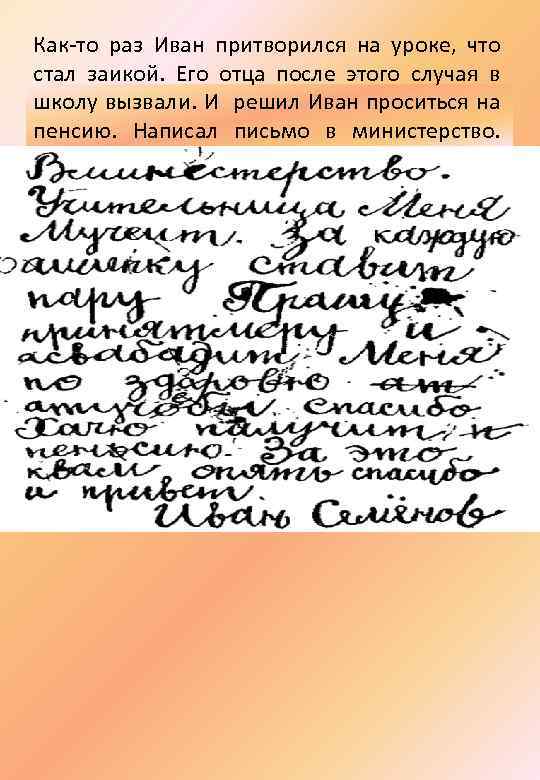 Как-то раз Иван притворился на уроке, что
стал заикой. Его отца после этого случая в
школу вызвали. И решил Иван проситься на
пенсию. Написал письмо в министерство.
Вминестерство.
Учительница Меня
Мучеит. За каждую
ашипку ставит
пару Прашу
принятмеру и
асвабадит Меня
по здаровью ат
атучобы спасибо
Хачю палучит п
пеньсию. За это
квам опять спасибо
и привет.
Иван Семёнов